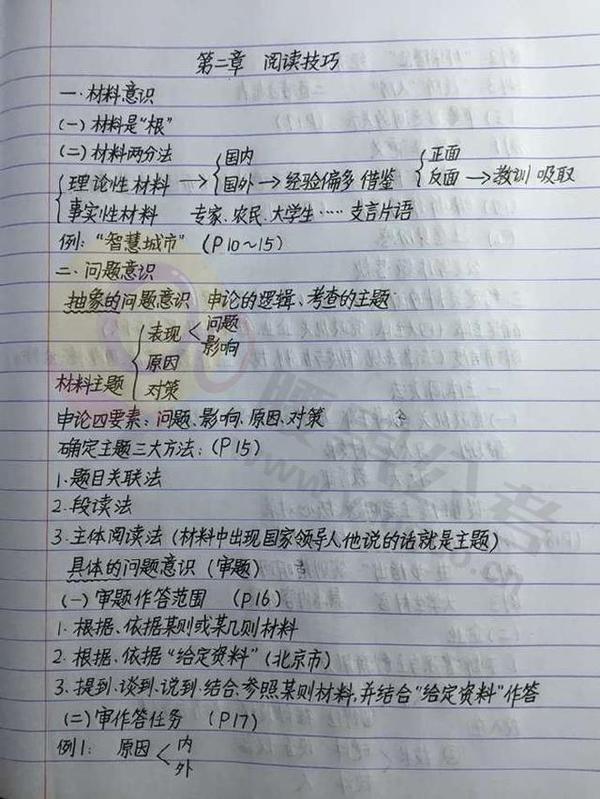 第二章 阅读技巧
一.材料意识
(一)材料是"根"
(二)材料两分法
理论性材料→国内 国外→经验偏多 借鉴 正面 反面→教训 吸取
事实性材料 专家、农民、大学生……支言片语
例:"智慧城市"(P10~15)
二.问题意识
抽象的问题意识 申论的逻辑、考查的主题
材料主题 表现<问题 影响
原因
对策
申论四要素:问题、影响、原因、对策
确定主题三大方法:(P15)
1.题目关联法
2.段读法
3.主体阅读法(材料中出现国家领导人他说的话就是主题)
具体的问题意识(审题)
(一)审题作答范围 (P16)
1.根据、依据某则或某几则材料
2.根据、依据"给定资料"(北京市)
3.提到、谈到、说到、结合、参照某则材料,并结合"给定资料"作答
(二)审作答任务 (P17)
例1: 原因<内 外